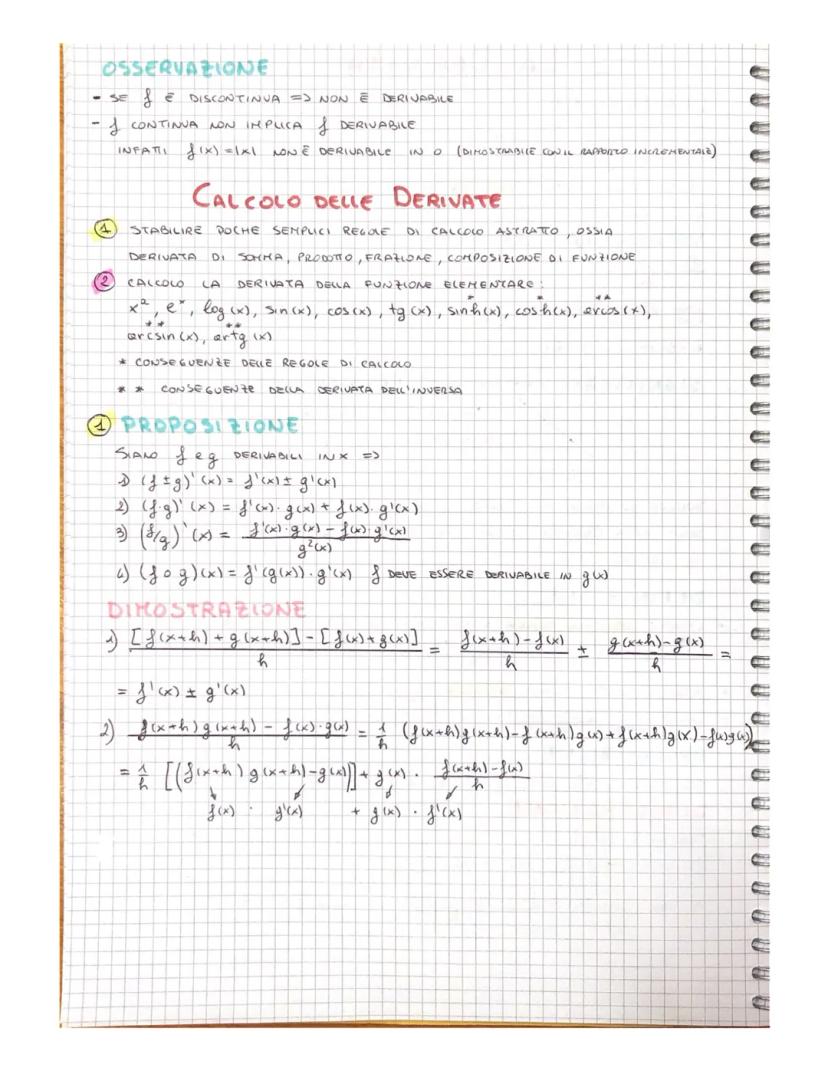 OSSERVAZIONE
- SE f È DISCONTINUA => NON È DERIVABILE
- f CONTINUA NON IMPLICA f DERIVABILE
INFATTI f(x) = |x| NON È DERIVABILE IN 0 (DIMOSTRABILE CON IL RAPPORTO INCREMENTALE)
CALCOLO DELLE DERIVATE
① STABILIRE POCHE SEMPLICI REGOLE DI CALCOLO ASTRATTO, OSSIA
DERIVATA DI SOMMA, PRODOTTO, FRAZIONE, COMPOSIZIONE DI FUNZIONE
② CALCOLO LA DERIVATA DELLA FUNZIONE ELEMENTARE:
xᵃ, eˣ, log(x), sin(x), cos(x), tg(x), sinh(x)*, cosh(x)*, arcos(x)**,
arcsin(x)**, artg(x)**
* CONSEGUENZE DELLE REGOLE DI CALCOLO
* * CONSEGUENZE DELLA DERIVATA DELL'INVERSA
① PROPOSIZIONE
SIANO f e g DERIVABILI IN x =>
1) (f ± g)'(x) = f'(x) ± g'(x)
2) (f·g)'(x) = f'(x)·g(x) + f(x)·g'(x)
3) (f/g)'(x) = f'(x)·g(x) - f(x)·g'(x) / g²(x)
4) (f o g)(x) = f'(g(x))·g'(x) f DEVE ESSERE DERIVABILE IN g(x)
DIMOSTRAZIONE
1) [f(x+h) + g(x+h)] - [f(x) + g(x)] / h = f(x+h) - f(x) / h ± g(x+h) - g(x) / h =
= f'(x) ± g'(x)
2) f(x+h)g(x+h) - f(x)·g(x) / h = 1/h (f(x+h)g(x+h) - f(x+h)g(x) + f(x+h)g(x) - f(x)g(x))
= 1/h [(f(x+h) g(x+h) - g(x))] + g(x) · f(x+h) - f(x) / h
f(x) · g'(x) + g(x) · f'(x)